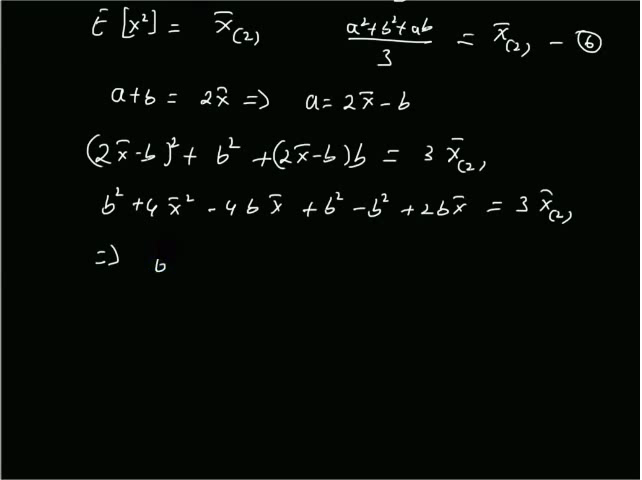 E [x²] = x̄₍₂₎   (a²+b²+ab)/3 = x̄₍₂₎ — ⑥
a+b = 2x̄ => a = 2x̄ - b
(2x̄-b)² + b² + (2x̄-b)b = 3 x̄₍₂₎,
b² + 4x̄² - 4bx̄ + b² - b² + 2bx̄ = 3 x̄₍₂₎,
=> b